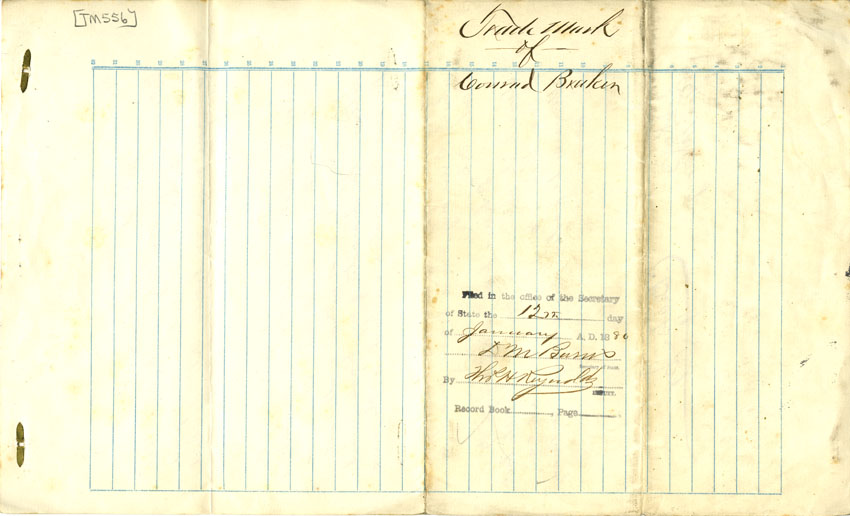 [TM556]
Trade Mark
of
Conrad Braken
Filed in the office of the Secretary
of State the 12th day
of January A. D. 1880
D M Burns
Secretary of State.
By Thos H Reynolds
DEPUTY.
Record Book , Page